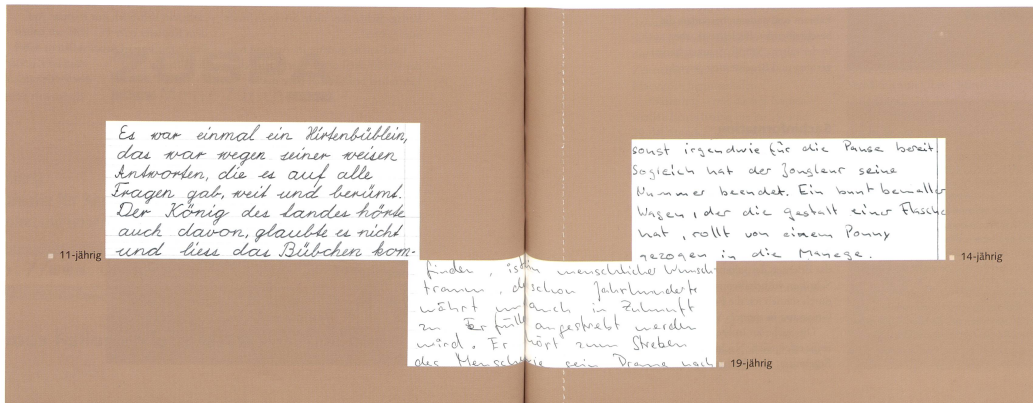 Es war einmal ein Hirtenbüblein,
das war wegen seiner weisen
Antworten, die es auf alle
Fragen gab, weit und berümt.
Der König des Landes hörte
auch davon, glaubte es nicht
und liess das Bübchen kom-
11-jährig
finden, ist menschlicher Wunsch-
traum, schon Jahrhunderte
währt auch in Zukunft
zu angestrebt werden
wird. Er zum Streben
des sein Drama nach
19-jährig
sonst irgendwie für die Pause bereit
Sogleich hat der Jongleur seine
Nummer beendet. Ein bunt bemalter
Wagen, der die gestalt einer Flasche
hat, rollt von einem Ponny
gezogen in die Manege.
14-jährig